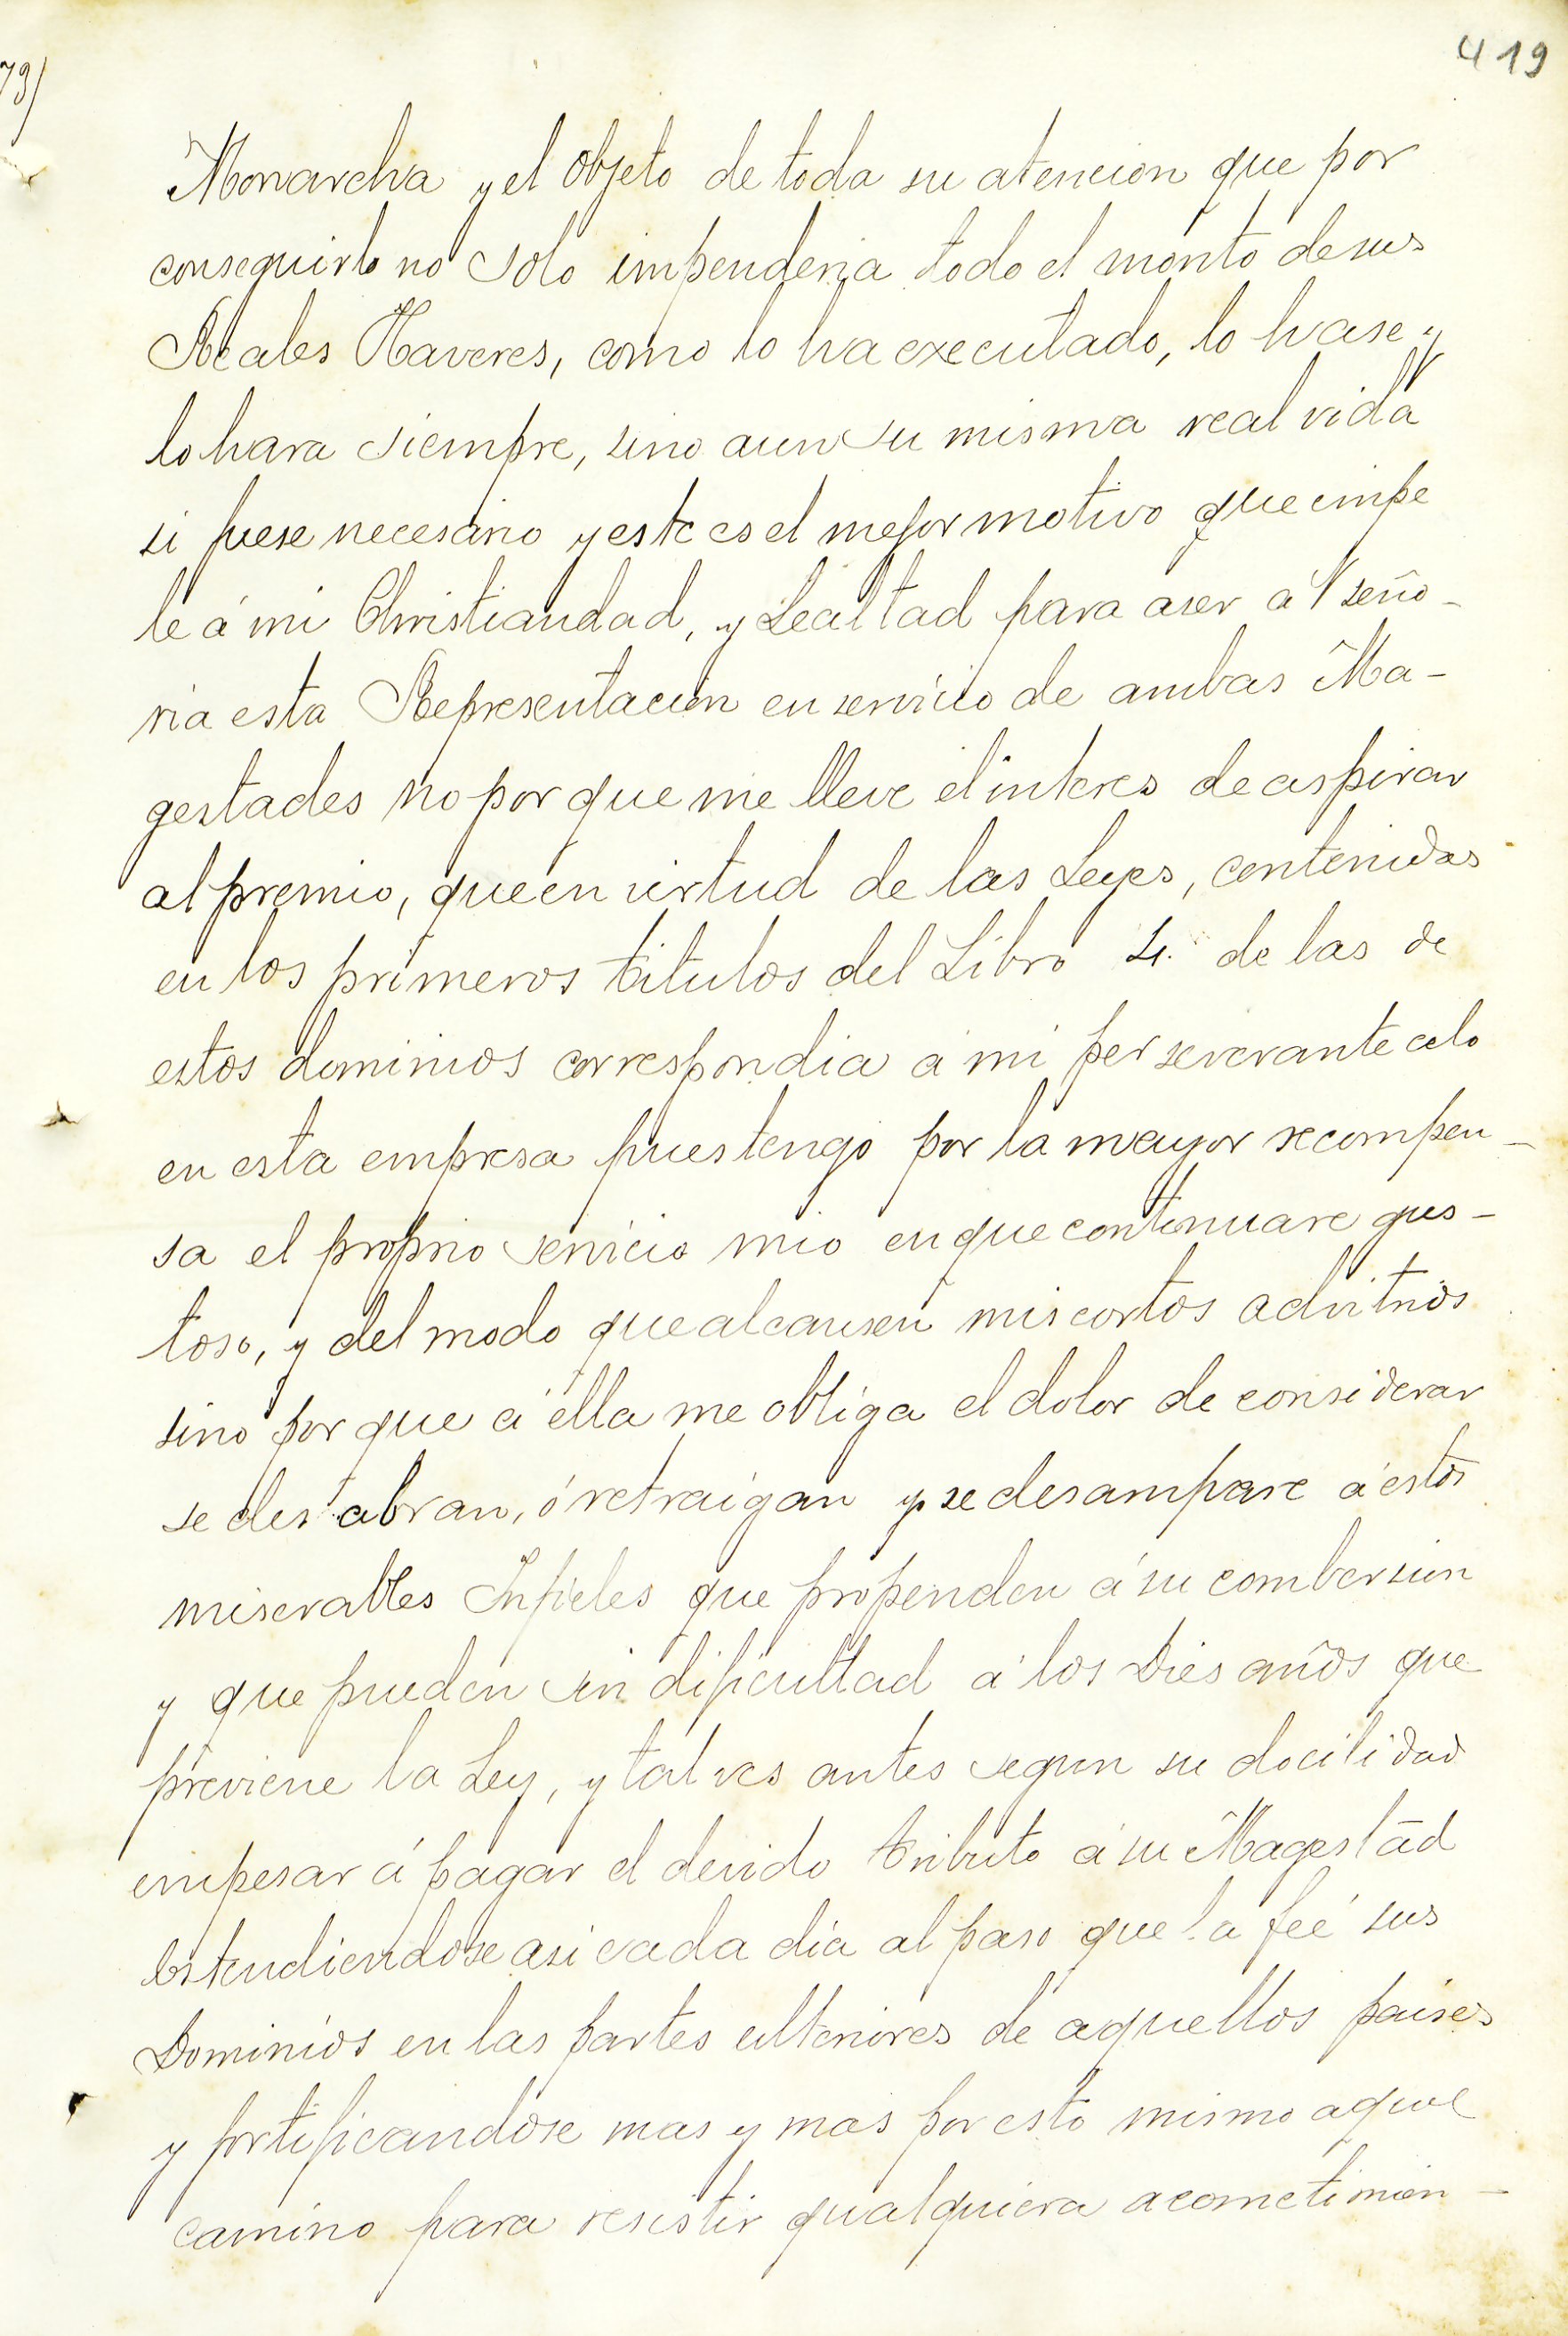 419
79)
Monarcha y el Objeto de toda su atencion que por
conseguirlo no solo impenderia todo el monto de sus
Reales Haveres, como lo ha executado, lo hase y
lo hara siempre, sino aun su misma real vida
si fuese necesario y este es el mejor motivo que impe
le á mi Christiandad, y Lealtad para aser á V seño-
ria esta Representacion en servicio de ambas Ma-
gestades no por que me lleve el interes de aspirar
al premio, que en virtud de las Leyes, contenidas
en los primeros titulos del Libro 4. de las de
estos dominios correspondia a mi perseverante celo
en esta empresa pues tengo por la mayor recompen-
sa el proprio servicio mio en que continuare gus-
toso, y del modo que alcansen mis cortos advitrios
sino por que á ella me obliga el dolor de considerar
se des abran, ó retraigan y se desampare á estos
miserables Infieles que propenden á su combersion
y que pueden sin dificultad á los Dies años que
previene la Ley, y tal ves antes segun su docilidad
empesar á pagar el devido tributo á su Magestad
Estendiendose asi cada dia al paso que la feé sus
Dominios en las partes ulteriores de aquellos paises
y fortificandose mas y mas por esto mismo aquel
camino para resistir qualquiera acometimien-